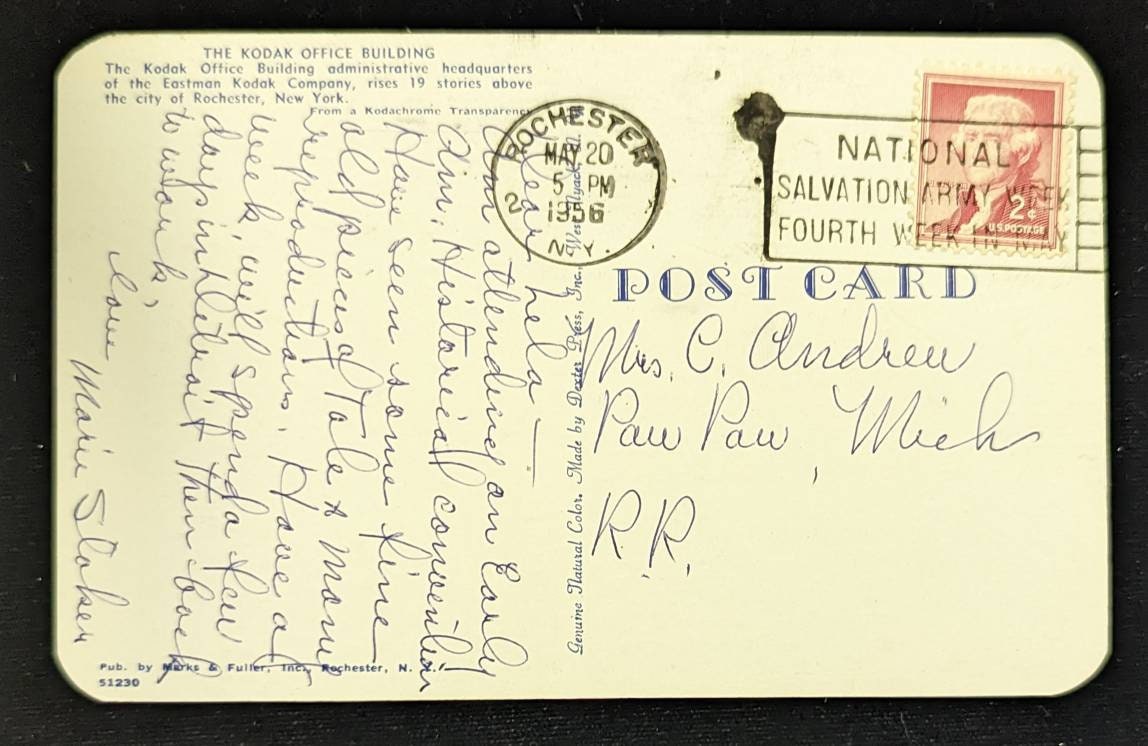 THE KODAK OFFICE BUILDING
The Kodak Office Building administrative headquarters
of the Eastman Kodak Company, rises 19 stories above
the city of Rochester, New York.
From a Kodachrome Transparency
ROCHESTER
MAY 20
5 PM
1956
2
N.Y.
NATIONAL
SALVATION ARMY WEEK
FOURTH WEEK IN MAY
2¢
U.S. POSTAGE
POST CARD
Mrs. C. Andrew
Paw Paw, Mich
R.R.
Genuine Natural Color. Made by Dexter Press, Inc., West Nyack, N.Y.
Dear
Am attending an Early
Am. Historical convention
Have seen some fine
old pieces of
reproductions. Have a
week, will spend a few
days in then back
to work,
Love
Marie
Pub. by Marks & Fuller, Inc., Rochester, N. Y.
51230